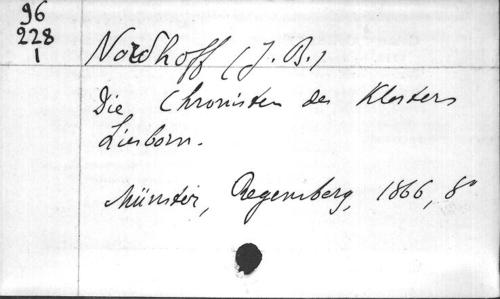 96
228
1
Nordhoff (J. B.)
Die Chronisten des Klosters
Liesborn.
Münster, Regensberg, 1866, 8°